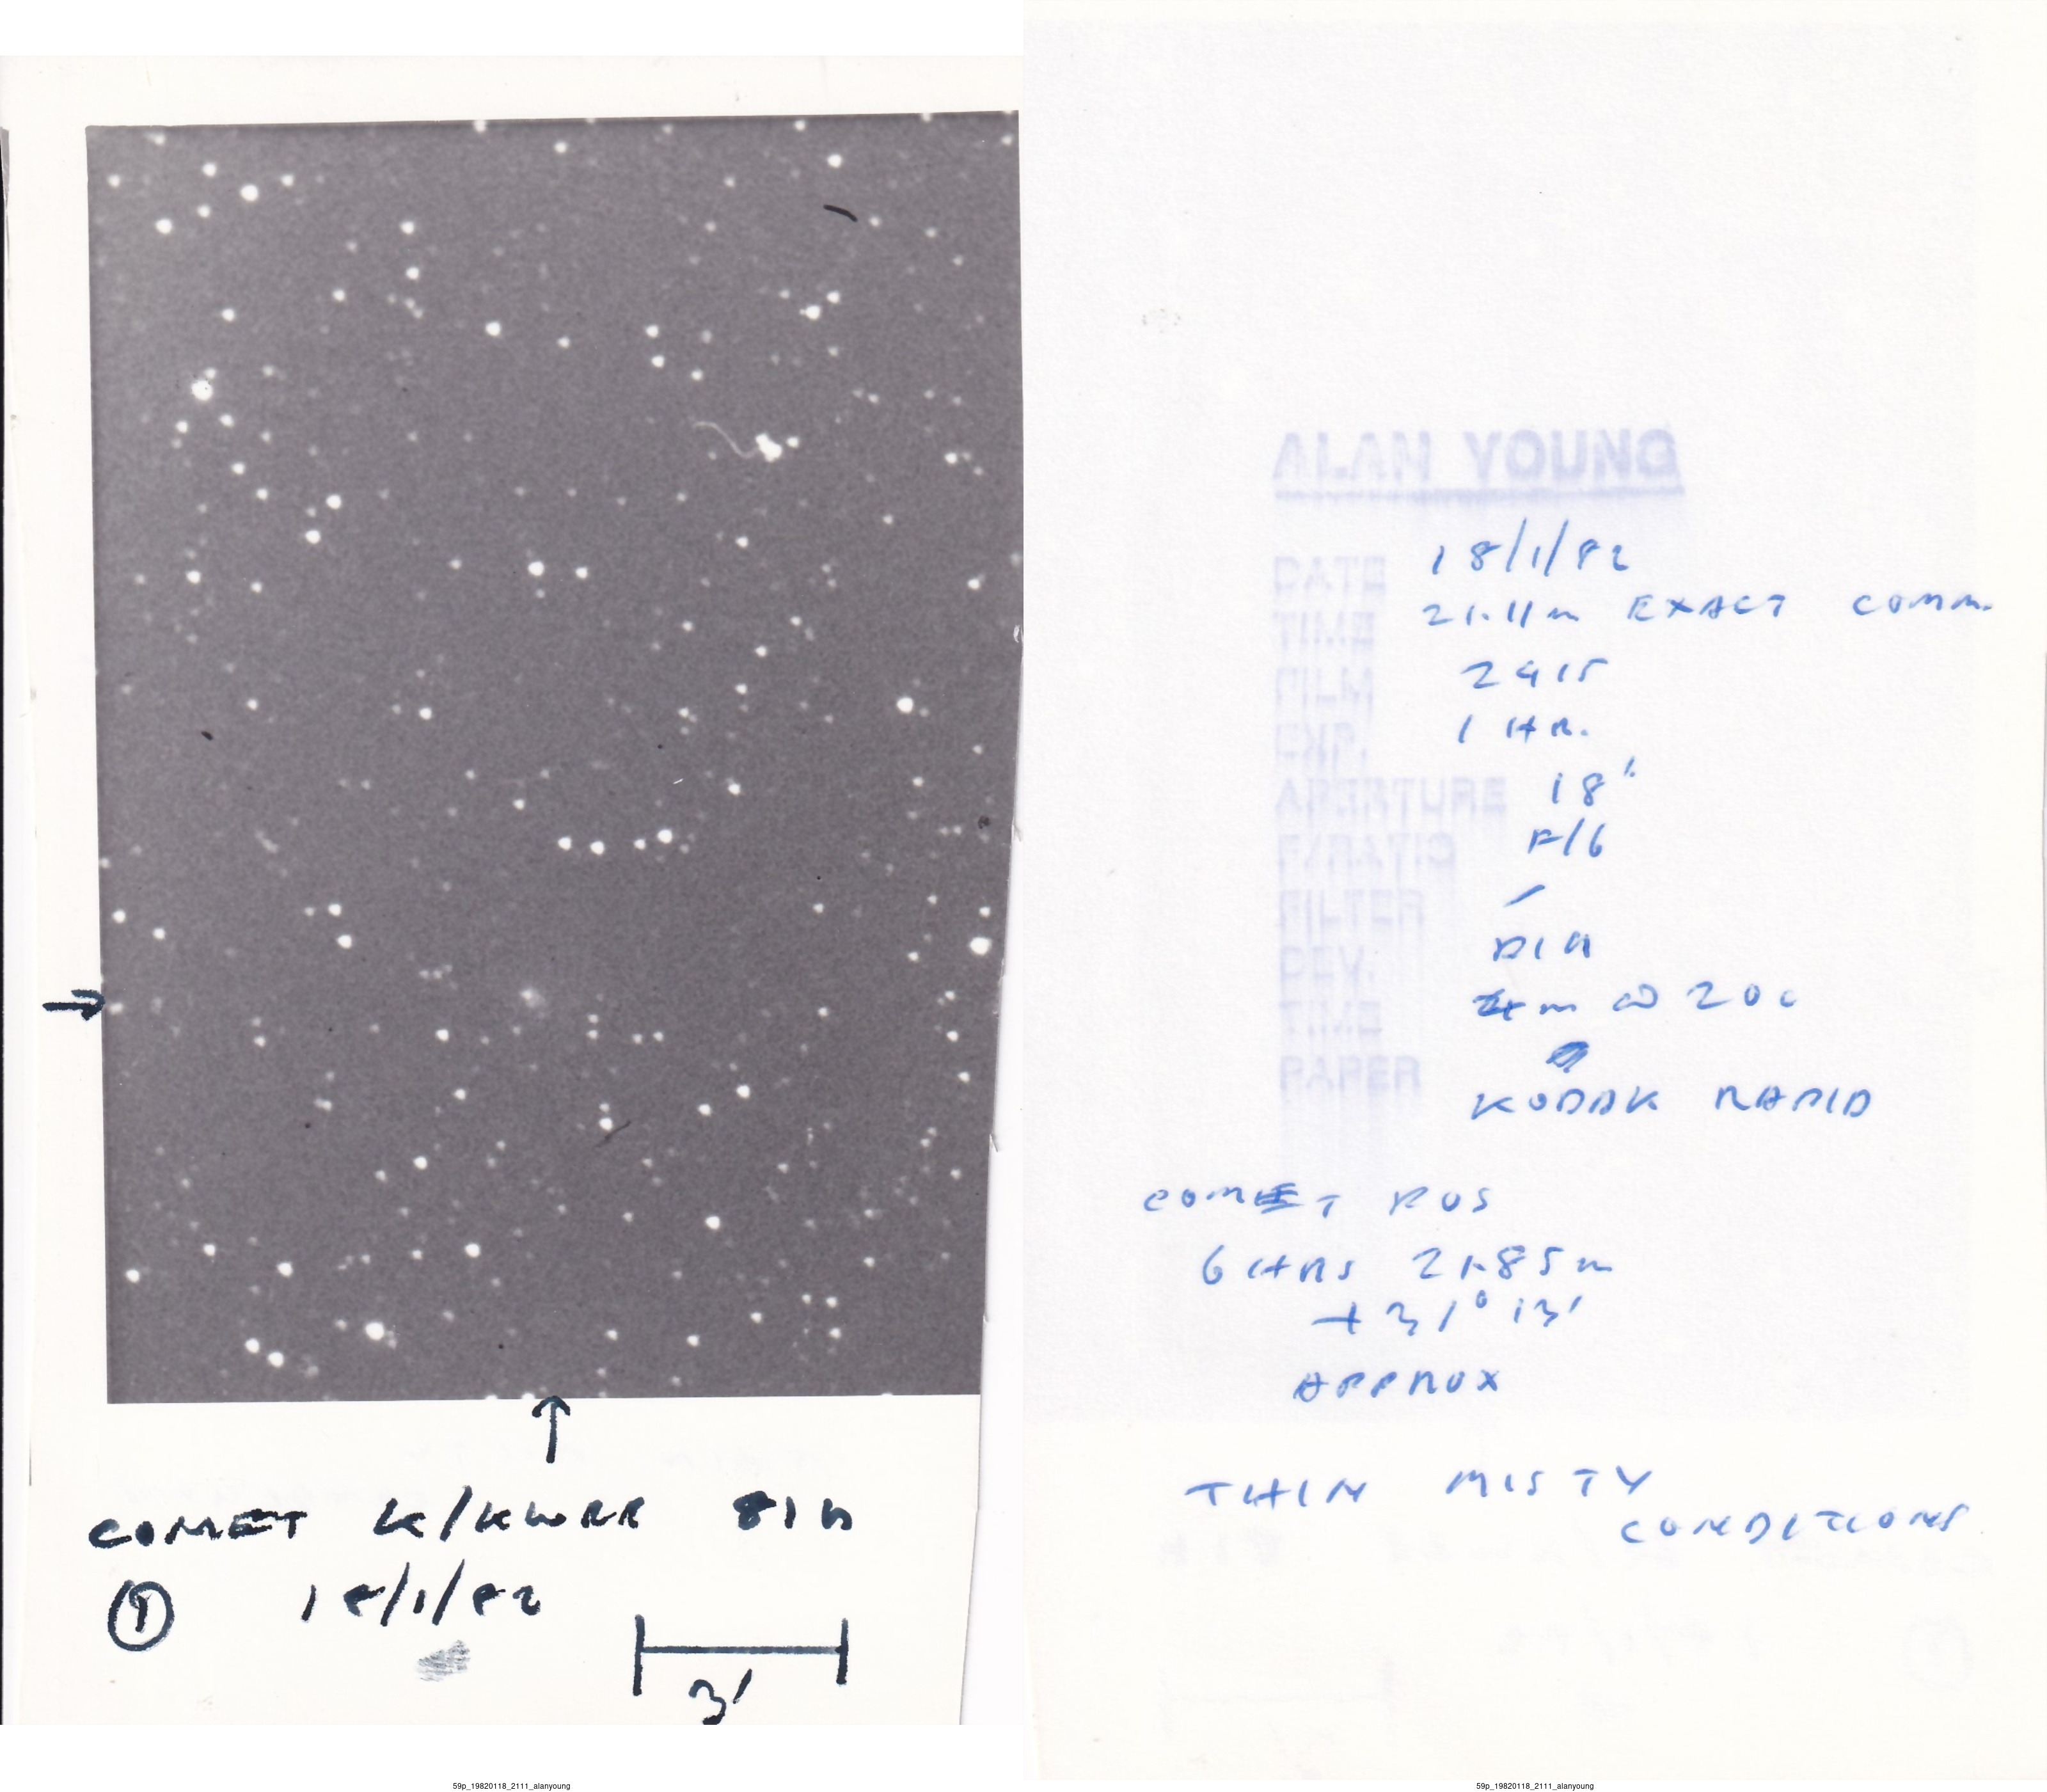 COMET K/KWRR 81h
① 18/1/82
3'
59p_19820118_2111_alanyoung
ALAN YOUNG
DATE 18/1/82
TIME 21.11m EXACT COMM.
FILM 2415
EXP. 1 HR.
APERTURE 18"
F/RATIO F/6
FILTER -
DEV. D19
TIME 4m @ 20c
PAPER KODAK RAPID
COMET POS
6 HRS 21.85m
+31° 13'
APPROX
THIN MISTY
CONDITIONS
59p_19820118_2111_alanyoung